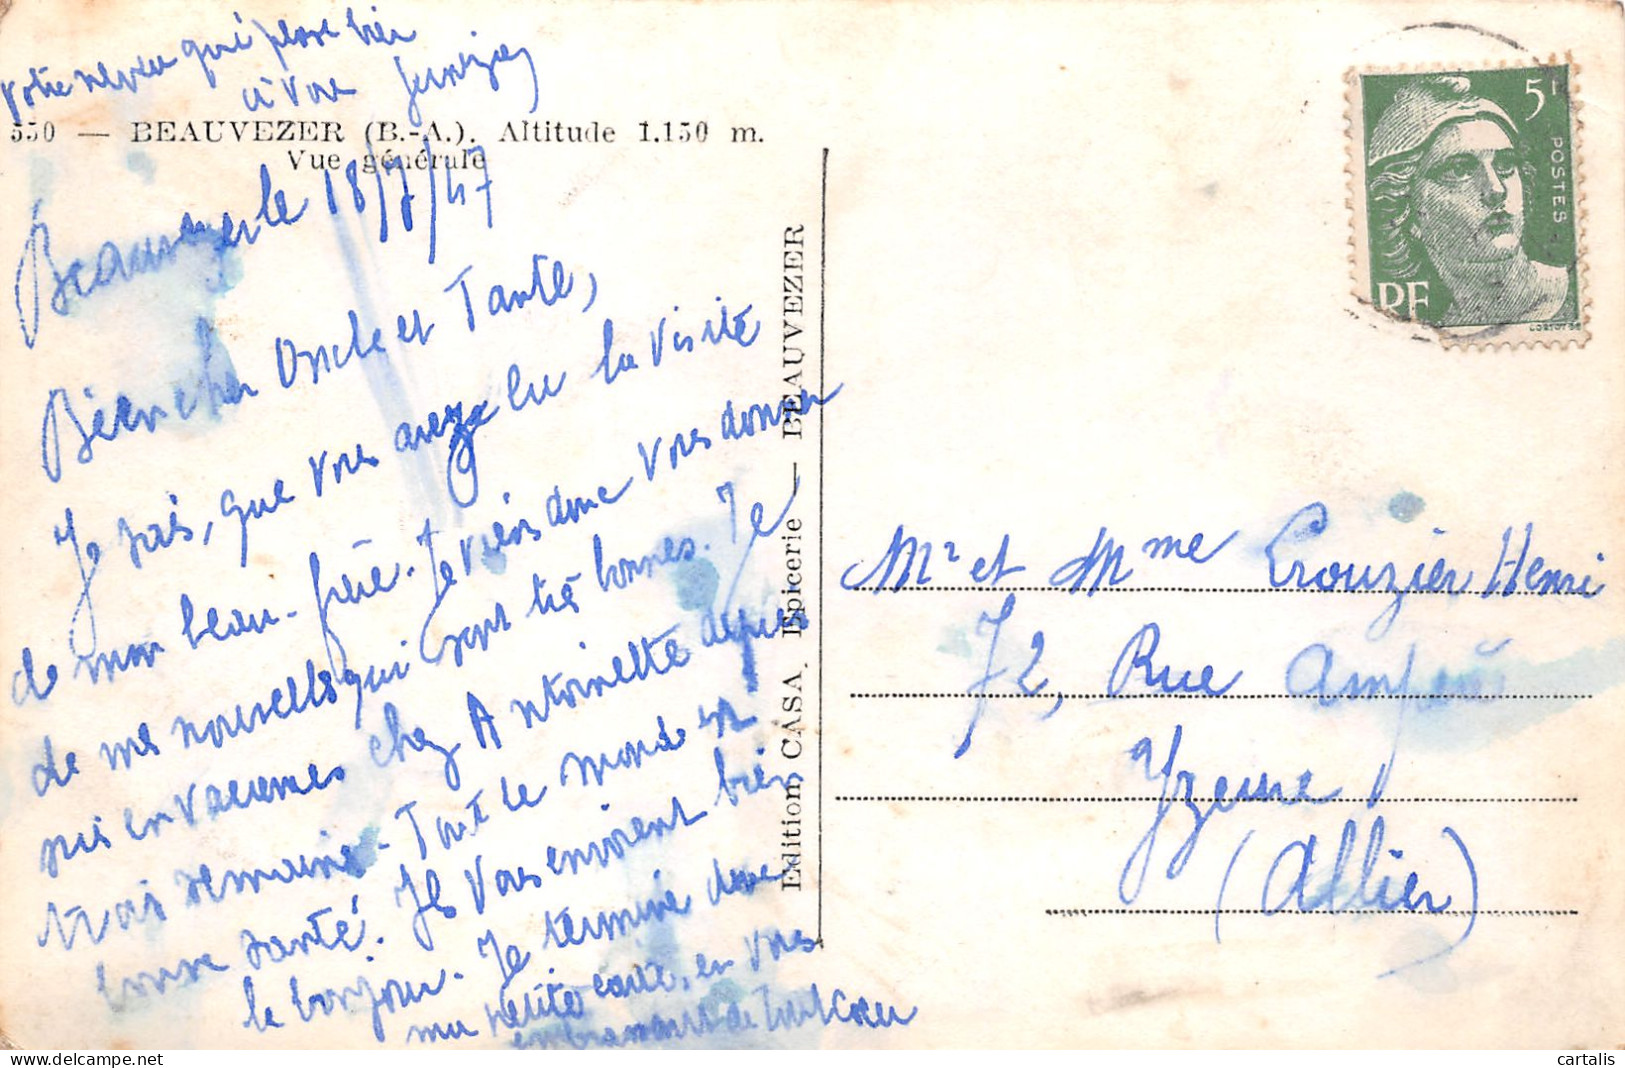 550 — BEAUVEZER (B.-A.). Altitude 1.150 m.
Vue générale
Beauvezer le 18/7/47
Bien cher Oncle et Tante,
Je sais, que vous avez eu la visite
de mon beau-frère. Je viens donc vous donner
de mes nouvelles qui sont très bonnes. Je
suis en vacances chez Antoinette depuis
trois semaines. Tout le monde est
bonne santé. Ils vous envoient bien
le bonjour. Je termine donc
ma petite carte, en vous
embrassant de tout coeur
Votre neveu qui pense bien
à vous
Edition CASA. Epicerie — BEAUVEZER
5F
POSTES
RF
Mr et Mme Crouzier Henri
72, Rue Ampère
Yzeure
(Allier)
cartalis